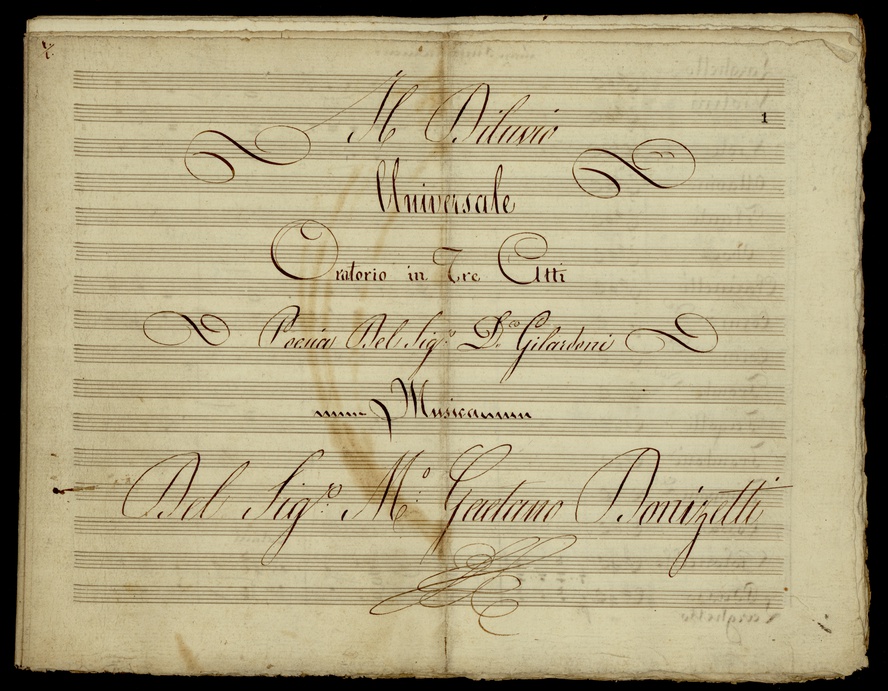 1
Il Diluvio
Universale
Oratorio in Tre Atti
Poesia Del Sig.º D.co Gilardoni
Musica
Del Sig.º M.º Gaetano Donizetti